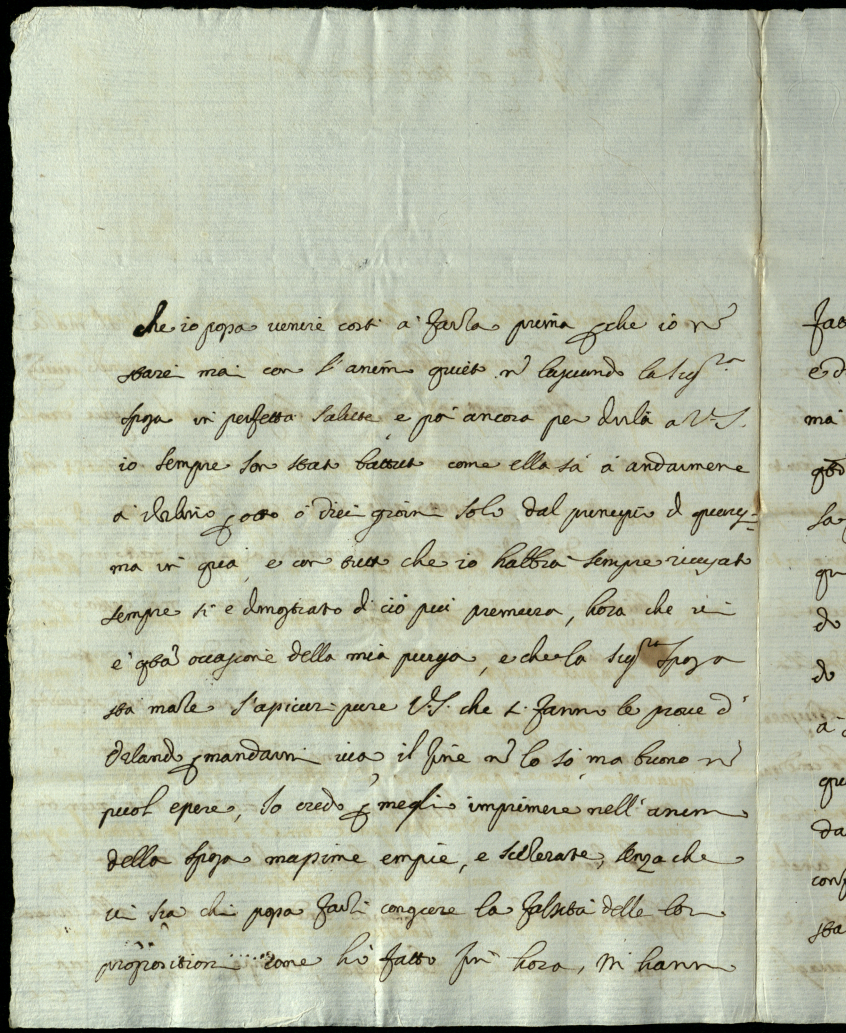 che io possa venire costì à farla prima perche io nõ
starei mai con l'animo quieto nõ lasciando la Sig.ra
sposa in perfetta salute e poi ancora per dirla a V.S.
io sempre son stato battuto come ella sà à andarmene
à per otto ò dieci giorni solo dal principio di quares=
ma in quà, e con tutto che io habbia sempre ricusato
sempre si è dimostrato di ciò più premura, hora che vi
è q̃sta occasione della mia purga, e che la Sig.ra Sposa
sta male s'assicuri pure V.S. che si fanno le prove d'
Orlando per mandarmi via il fine nõ lo sò, ma buono nõ
puol essere, Io credo per meglio imprimere nell'animo
della sposa massime empie, e scelerate, senza che
vi sia chi possa farli conoscere la falsità delle loro
propositioni come hò fatto fin hora, Mi hanno
fatt
e d
mai
sa
qu
do
do
à
qu
da
conf
sta